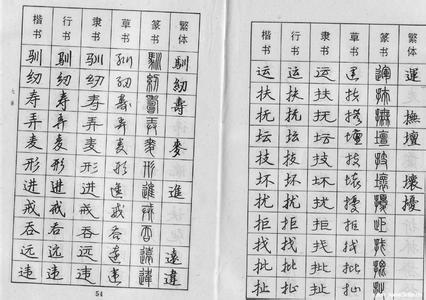 楷书 行书 隶书 草书 篆书 繁体
驯 驯 驯 驯 馴 馴
纫 纫 纫 纫 紉 紉
寿 寿 寿 寿 壽 壽
弄 弄 弄 弄 弄
麦 麦 麦 麦 麥 麥
形 形 形 形 形
进 进 进 进 進 進
戒 戒 戒 戒 戒
吞 吞 吞 吞 吞
远 远 远 远 遠 遠
违 违 违 违 違 違
54
楷书 行书 隶书 草书 篆书 繁体
运 运 运 运 運 運
扶 扶 扶 扶 扶
抚 抚 抚 抚 撫 撫
坛 坛 坛 壇 壇 壇
技 技 技 技 技
坏 坏 坏 壞 壞 壞
扰 扰 扰 擾 擾 擾
拒 拒 拒 拒 拒
找 找 找 找 找
批 批 批 批 批
扯 扯 扯 扯